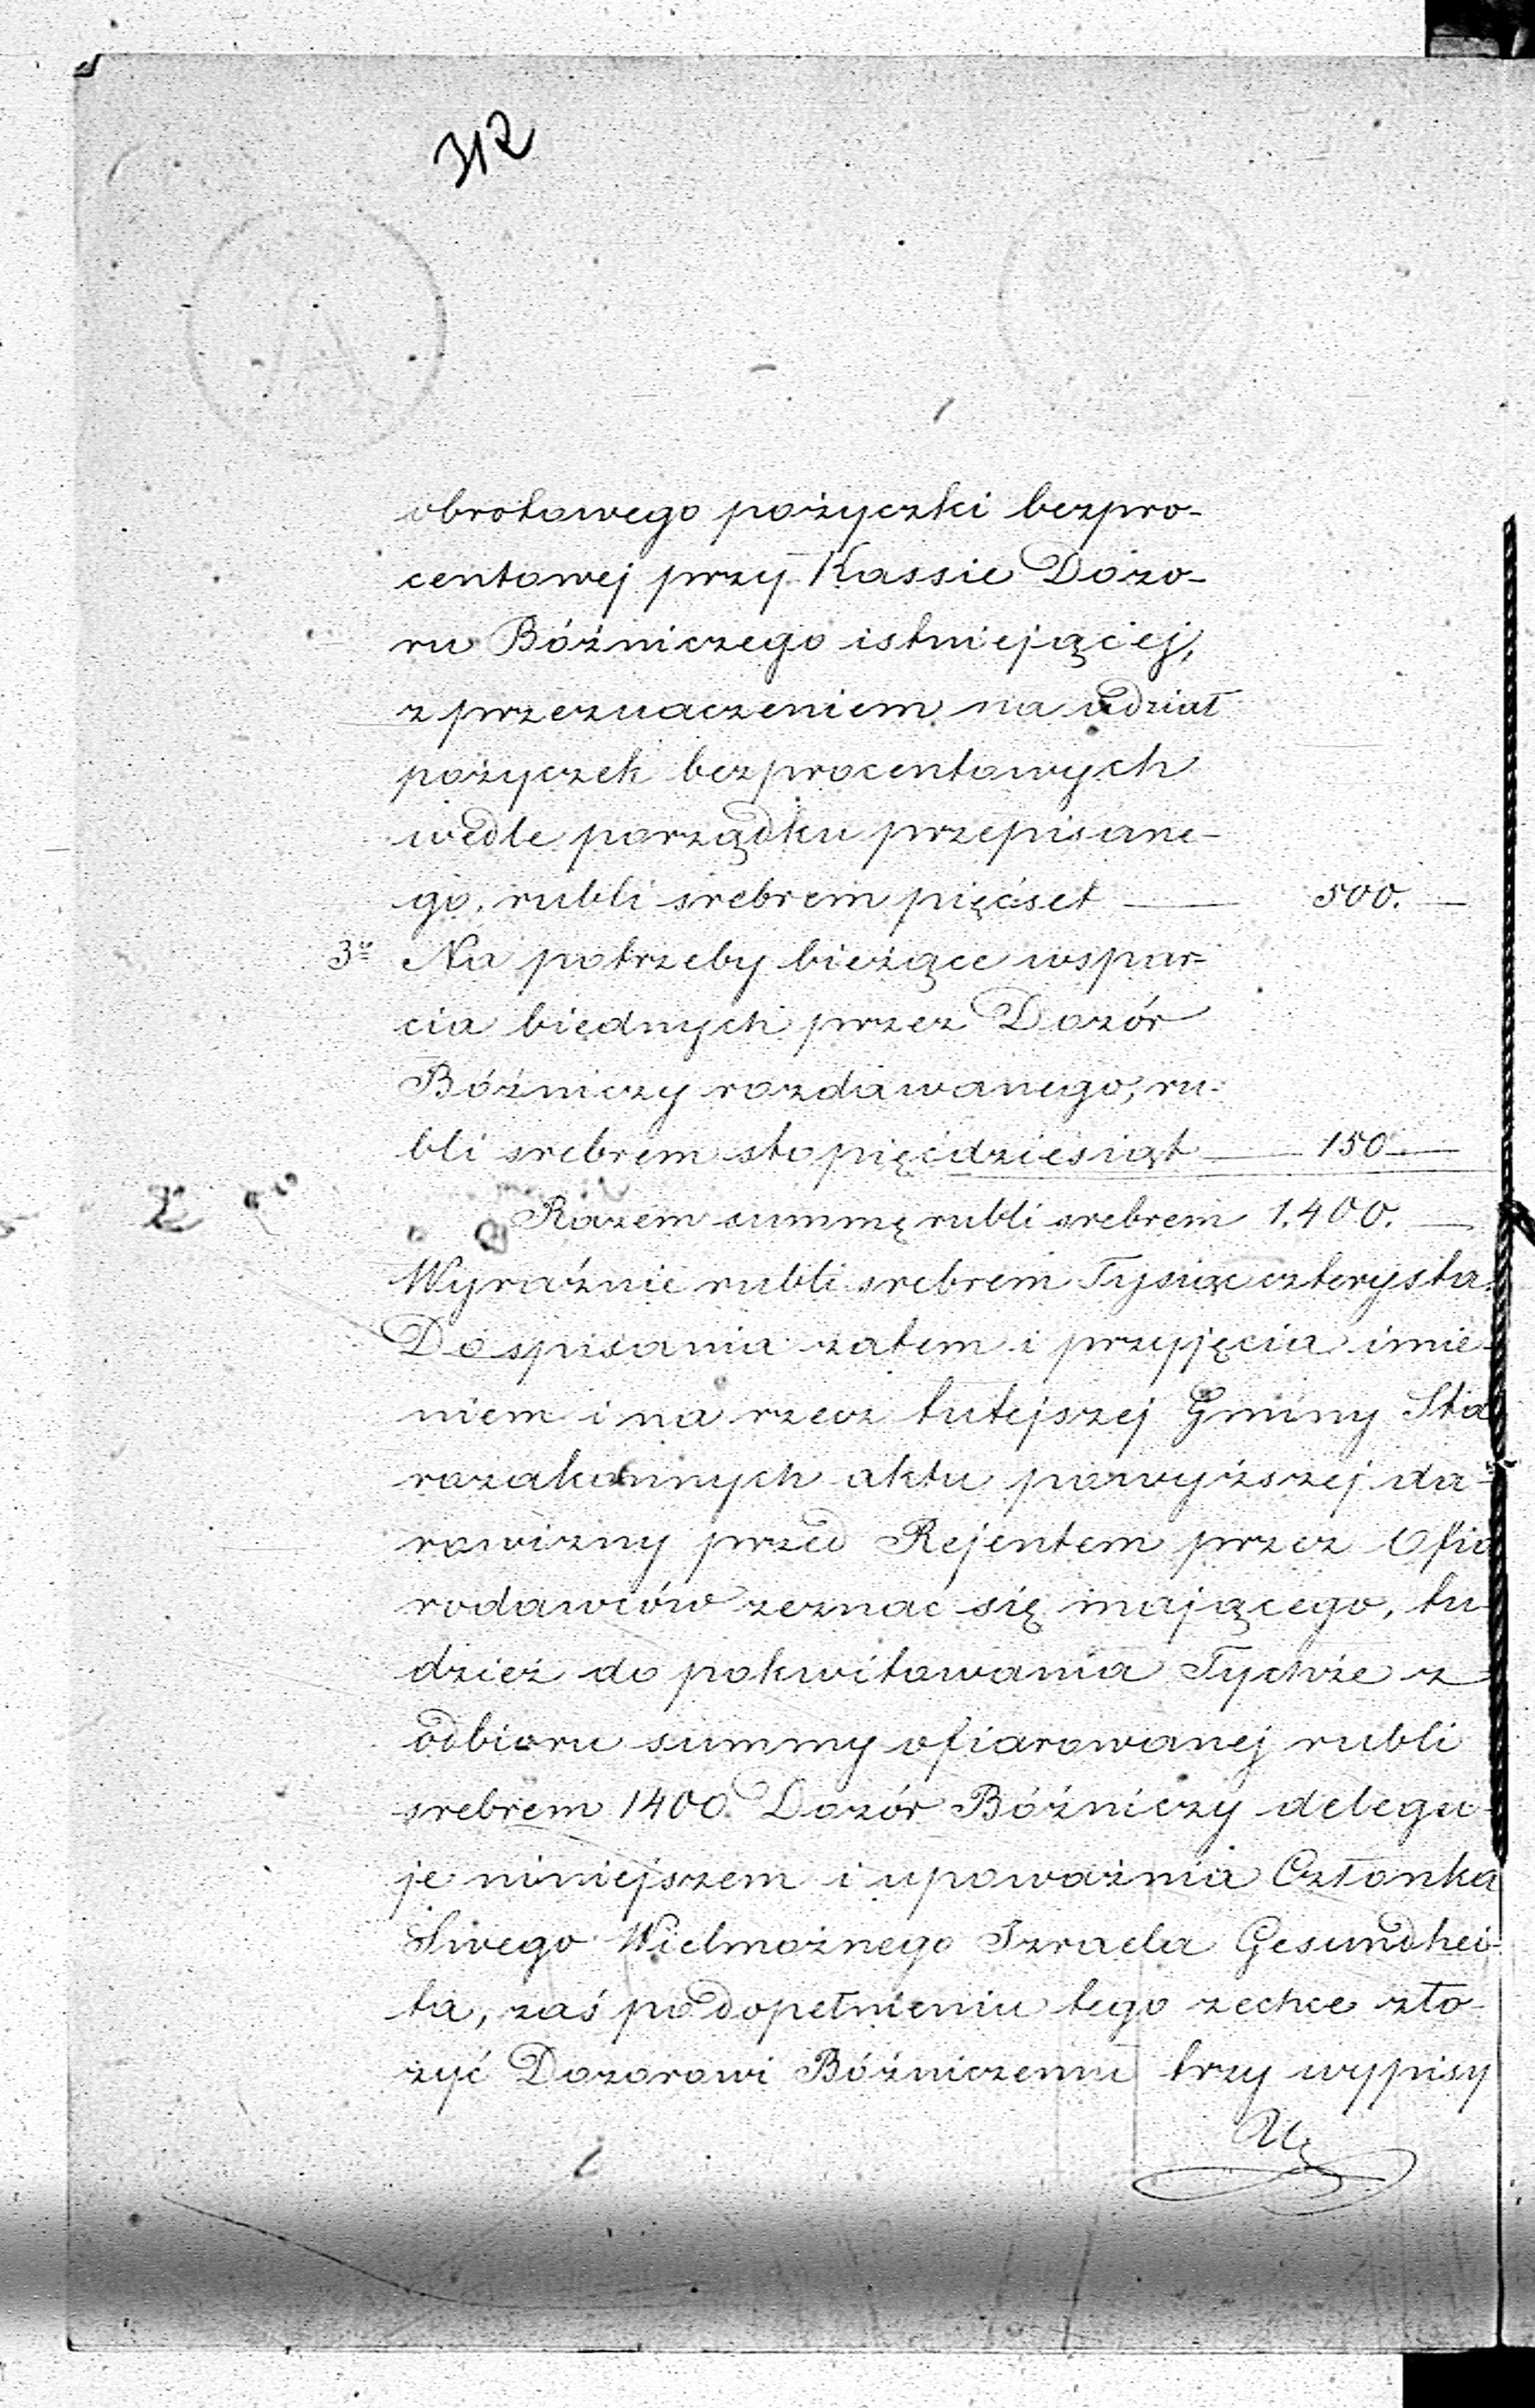 312
obrotowego pożyczki bezpro-
centowej przy Kassie Dozo-
ru Bóźniczego istniejącej,
z przeznaczeniem na udział
pożyczek bezprocentowych
wedle porządku przepisane-
go, rubli srebrem pięćset — 500. —
3º Na potrzeby bieżące wspar-
cia biednych przez Dozór
Bóźniczy rozdawanego, ru-
bli srebrem sto pięćdziesiąt — 150 —
Razem summę rubli srebrem 1.400. —
Wyraźnie rubli srebrem Tysiąc czterysta.
Do spisania zatem i przyjęcia imie-
niem i na rzecz tutejszej Gminy Sta
rozakonnych aktu powyższej da-
rowizny przed Rejentem przez Ofia
rodawców zeznać się mającego, tu-
dzież do pokwitowania Tychże z
odbioru summy ofiarowanej rubli
srebrem 1400. Dozór Bóźniczy delegu-
je niniejszem i upoważnia Członka
Swego Wielmożnego Izraela Gesundhei-
ta, zaś po dopełnieniu tego zechce zło-
żyć Dozorowi Bóźniczemu trzy wypisy